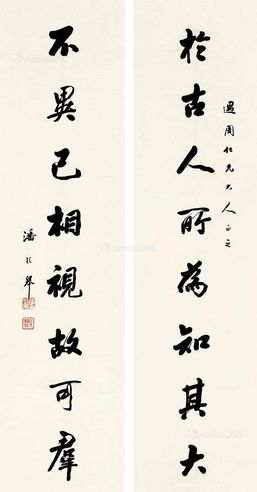 於古人所為知其大
遇周仁兄大人正之
不異己相視故可羣
潘龄皋